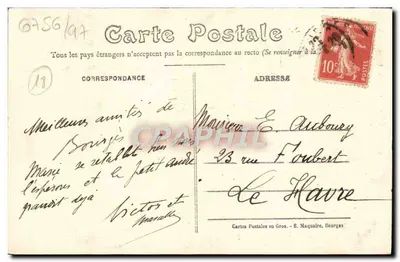 G756/97
Carte Postale
Tous les pays étrangers n'acceptent pas la correspondance au recto (Se renseigner à la
CORRESPONDANCE
ADRESSE
13
10
POSTES
Meilleures amitiés de
Bourges
Marie se rétablit bien nous
l'espérons et le petit André
grandit déjà
Victor et
Monsieur E. Aubourg
23 rue Foubert
Le Havre
CPAPHIL
Cartes Postales en Gros. - E. Maquaire, Bourges